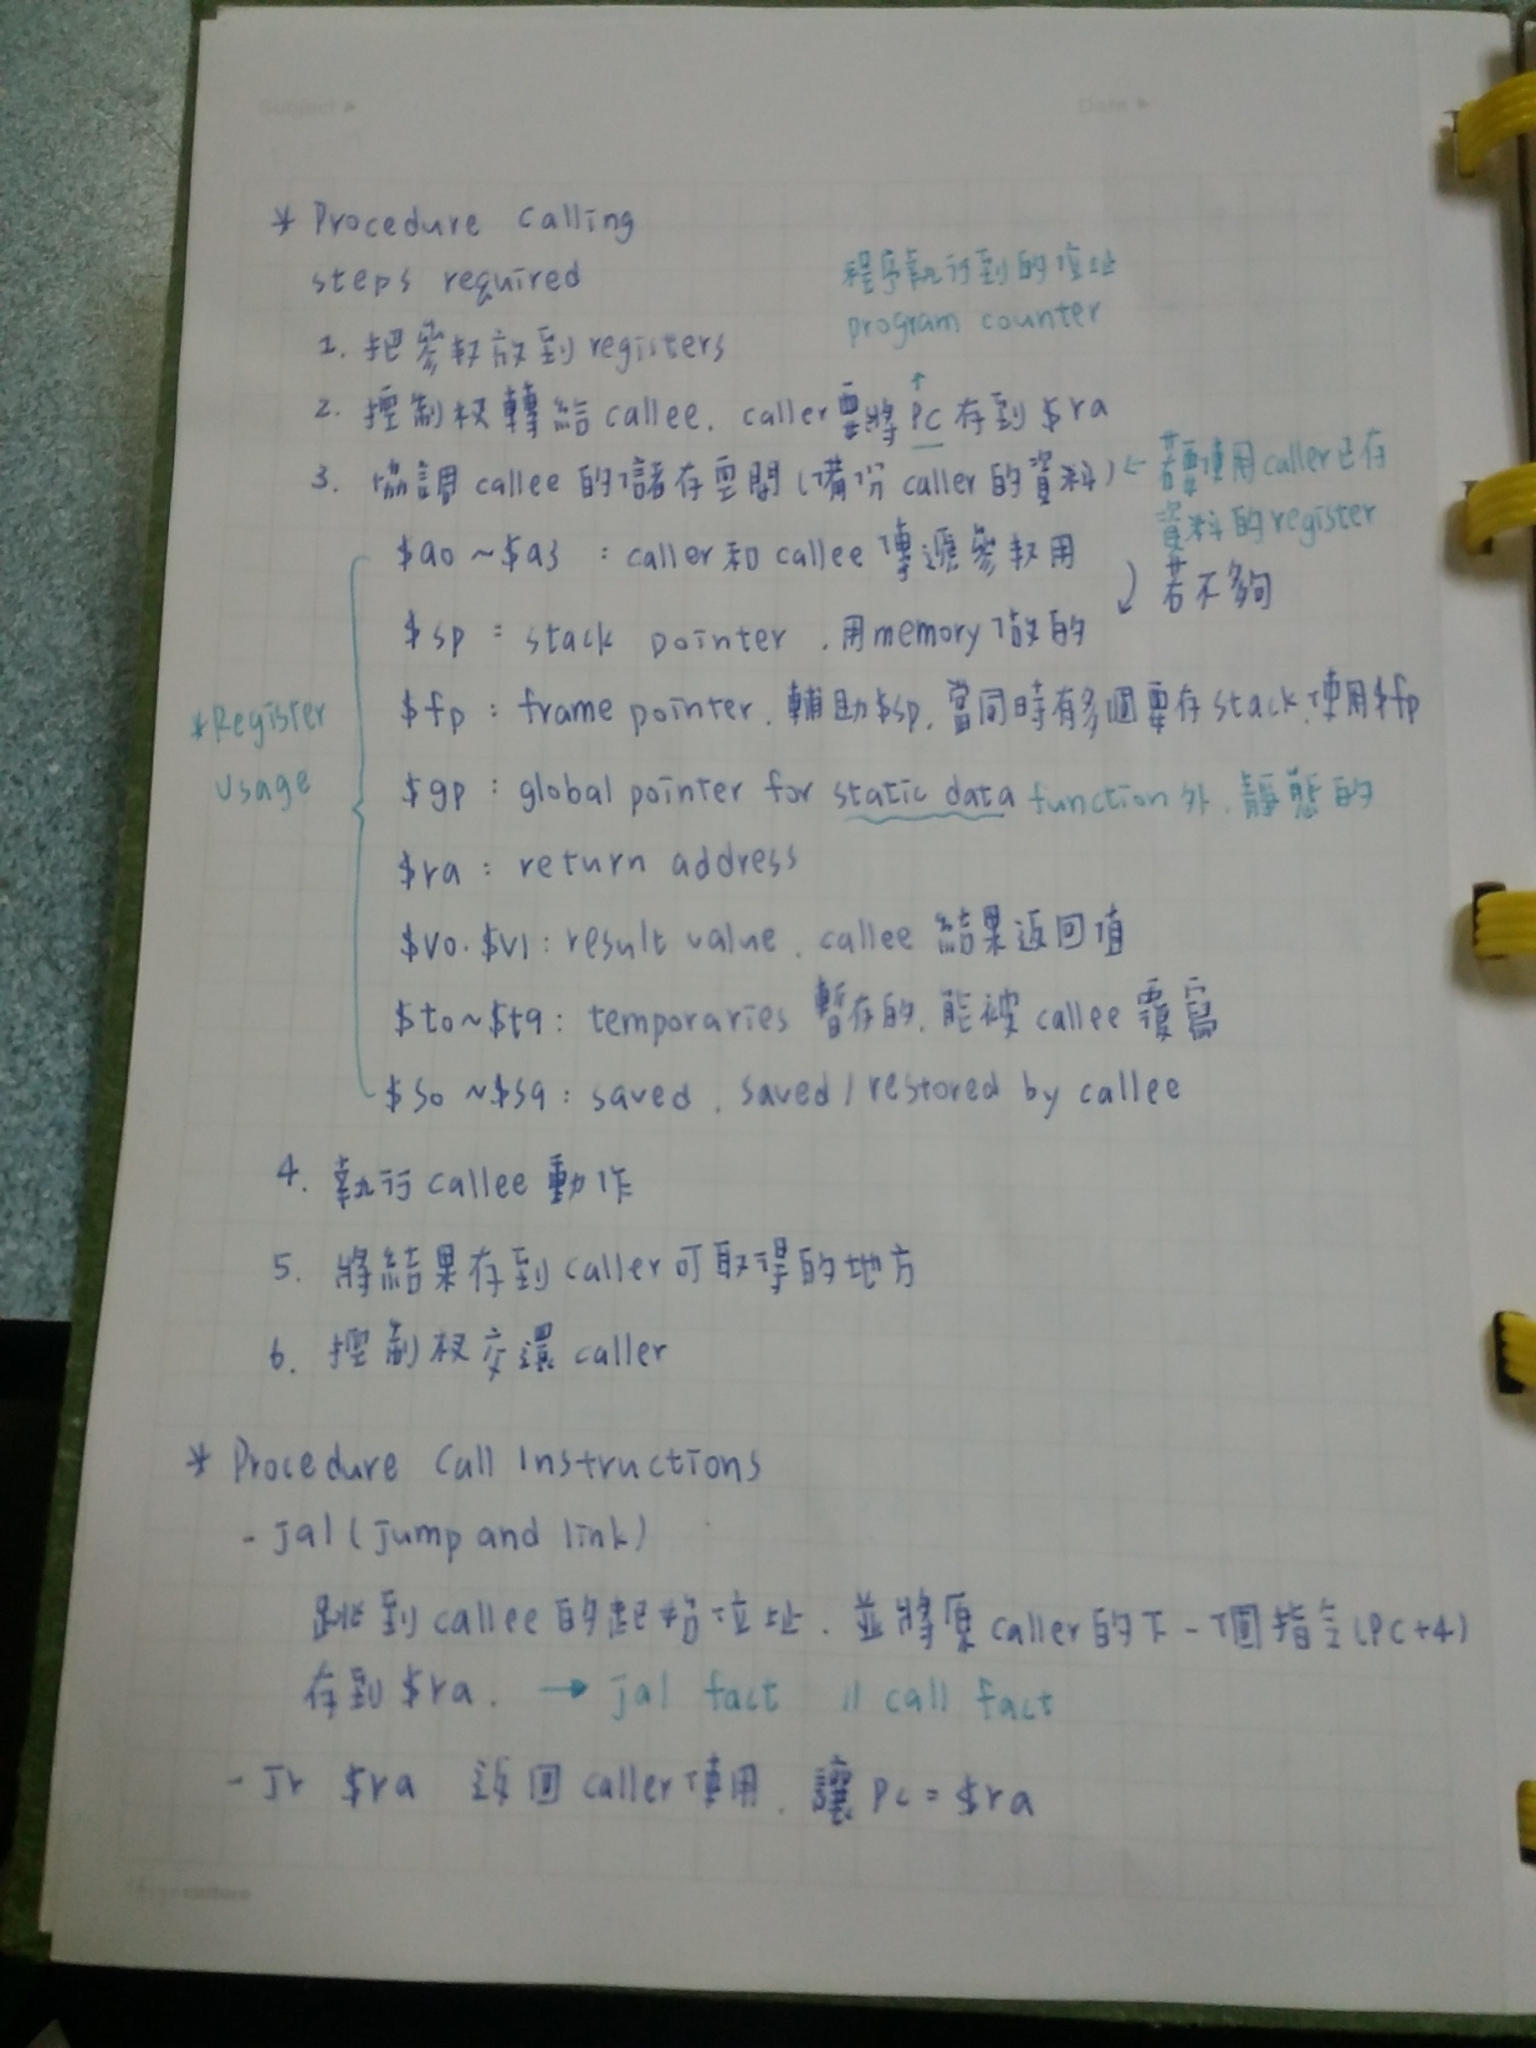 Subject ▶
Date ▶
* Procedure calling
steps required
程序執行到的位址
program counter
1. 把參数放到 registers
2. 控制权轉給 callee. caller 要將 PC 存到 $ra
3. 協調 callee 的儲存空間 (備份 caller 的資料) ← 若要使用 caller 已存
資料的 register
$a0 ~ $a3 : caller 和 callee 傳遞參数用
若不夠
$sp : stack pointer . 用 memory 做的
* Register
usage
$fp : frame pointer. 輔助 $sp. 當同時有多個要存 stack. 使用 $fp
$gp : global pointer for static data function 外. 靜態的
$ra : return address
$v0. $v1 : result value . callee 結果返回值
$t0 ~ $t9 : temporaries 暫存的. 能被 callee 覆寫
$s0 ~ $s9 : saved . saved / restored by callee
4. 執行 callee 動作
5. 將結果存到 caller 可取得的地方
6. 控制权交還 caller
* Procedure Call Instructions
- jal ( jump and link )
跳到 callee 的起始位址. 並將原 caller 的下一個指令 (PC+4)
存到 $ra. → jal fact // call fact
- Jr $ra 返回 caller 使用. 讓 PC = $ra